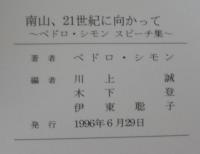 南山、21世紀に向かって
〜ペドロ・シモン スピーチ集〜
著者 ペドロ・シモン
編者 川上 誠
木下 登
伊東 聡子
発行 1996年6月29日